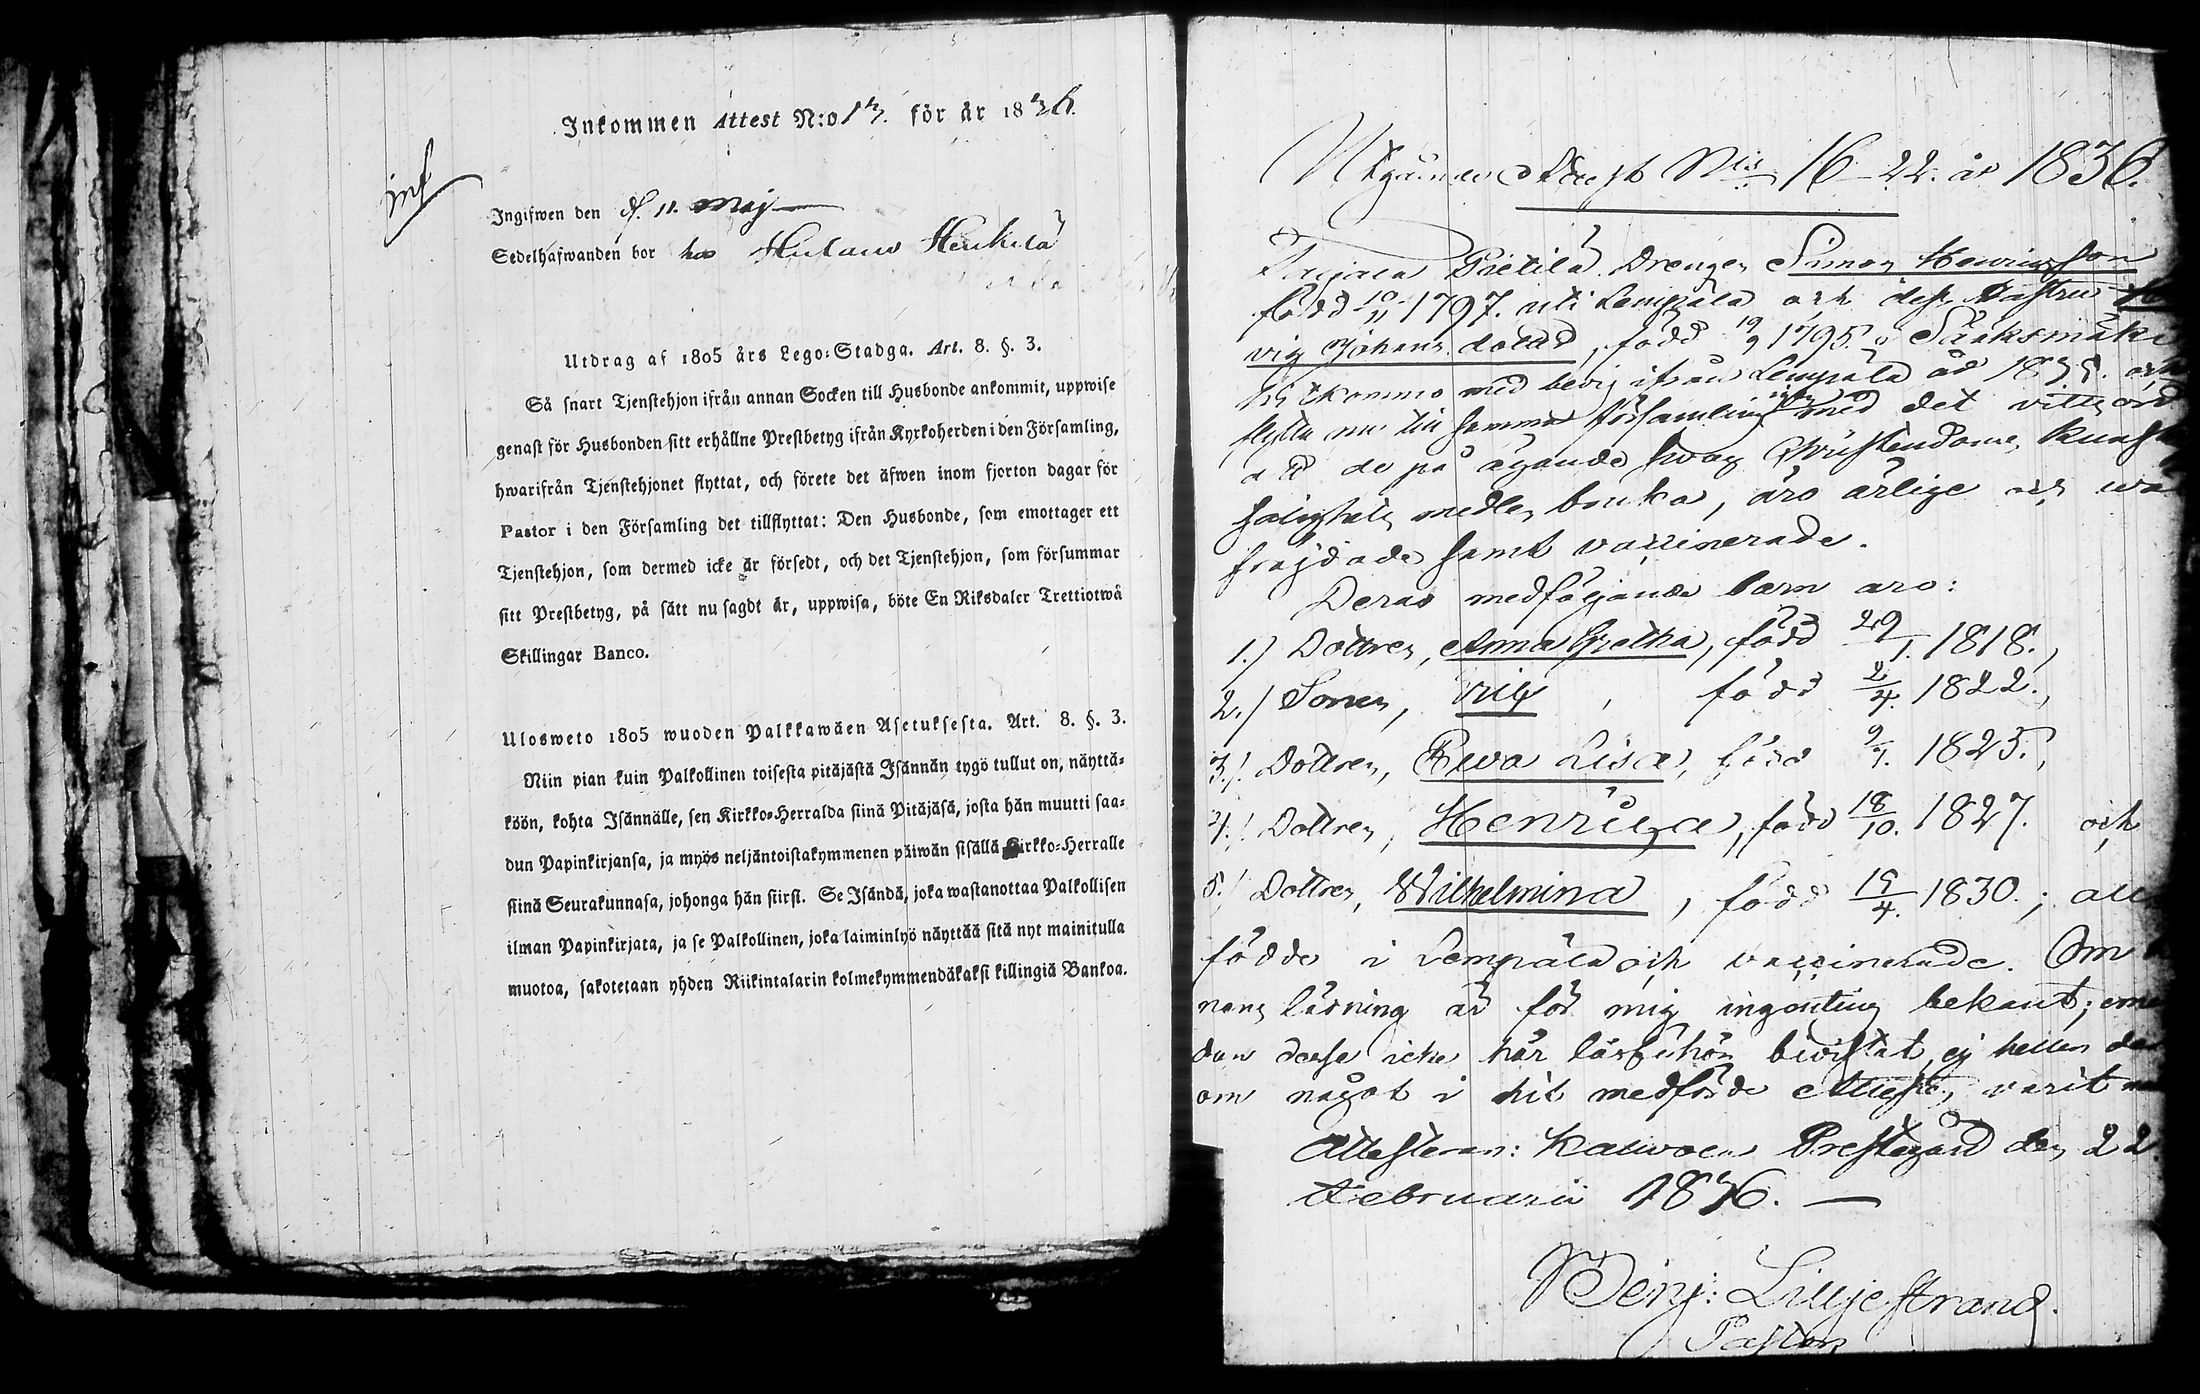 Inkommen Attest N:o 13. för år 1836.
inf
Ingifwen den d. 11. Maj
Sedelhafwanden bor hos Heikkilä
Utdrag af 1805 års Lego-Stadga. Art. 8. §. 3.
Så snart Tjenstehjon ifrån annan Socken till Husbonde ankommit, uppwise
genast för Husbonden sitt erhållne Prestbetyg ifrån Kyrkoherden i den Församling,
hwarifrån Tjenstehjonet flyttat, och förete det äfwen inom fjorton dagar för
Pastor i den Församling det tillflyttat: Den Husbonde, som emottager ett
Tjenstehjon, som dermed icke är försedt, och det Tjenstehjon, som försummar
sitt Prestbetyg, på sätt nu sagdt är, uppwisa, böte En Riksdaler Trettiotwå
Skillingar Banco.
Ulosweto 1805 wuoden Palkkawäen Asetuksesta. Art. 8. §. 3.
Niin pian kuin Palkollinen toisesta pitäjästä Isännän tygö tullut on, näyttä-
köön, kohta Isännälle, sen Kirkko-Herralda siinä Pitäjäsä, josta hän muutti saa-
dun Papinkirjansa, ja myös neljäntoistakymmenen päiwän sisällä Kirkko-Herralle
siinä Seurakunnasa, johonga hän siirsi. Se Isändä, joka wastanottaa Palkollisen
ilman Papinkirjata, ja se Palkollinen, joka laiminlyö näyttää sitä nyt mainitulla
muotoa, sakotetaan yhden Riikintalarin kolmekymmendäkaksi killingiä Bankoa.
Utgången Attest Nis 16-22. år 1836.
Pietilä Drengen Simon Henricsson
född 10/11 1797. uti Lempäla och dess Hustru
vig Johans dotter, född 19/9 1795 i Sääksmäki
hitkommo med bevis ifrån Lempäla år 1835. och
flytta nu till samma församling med det vittsord
att de på ägande svag Christendoms kunskap
salighets medlen bruka, äro ärlige och wäl
frejdade samt vaccinerade.
Deras medföljande barn äro:
1.) Dottren, Anna Gretha, född 29/1. 1818.,
2.) Sonen, Vilh, född 2/4. 1822.,
3.) Dottren, Ewa Lisa, född 9/1. 1825.,
4.) Dottren, Henrica, född 18/10. 1827. och
5.) Dottren, Wilhelmina, född 15/4. 1830.; alla
födde i Lempäla och vaccinerade. Om
nens läsning är för mig ingenting bekant; eme
dan desse icke här läsförhör bivistat, ej heller der
om något i hit medförde Attester, varit
Attesteras: Kalwola Prestegård den 22
Februarii 1836.
Benj: Lilljestrand.
Pastor